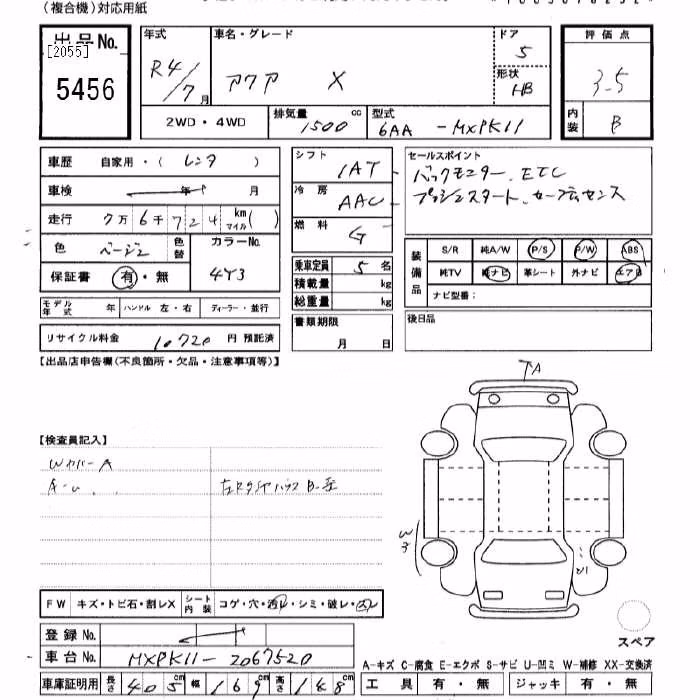 (複合機)対応用紙
出品No. [2055] 5456
年式 R4/7月
車名・グレード アクア X
ドア 5
形状 HB
評価点 3.5
2WD・4WD 排気量 1500cc 型式 6AA-MXPK11
内装 B
車歴 自家用・(レンタ)
車検 年 月
走行 7万6千724 km マイル( )
色 ベージュ 色替 カラーNo. 4Y3
保証書 有・無
シフト IAT
冷房 AAC
燃料 G
乗車定員 5名
積載量 kg
総重量 kg
セールスポイント
バックモニター、ETC
プッシュスタート、セーフティセンス
装備品 S/R 純A/W P/S P/W ABS
純TV 純ナビ 革シート 外ナビ エアB
ナビ型番:
モデル年式 年 ハンドル 左・右 ディーラー・並行
書類期限 月 日
後日品
リサイクル料金 10,720 円 預託済
【出品店申告欄(不良箇所・欠品・注意事項等)】
A
【検査員記入】
WカバーA
A-U
B-
W3
FW キズ・トビ石・割レX シート内装 コゲ・穴・スレ・シミ・破レ・
登録No.
車台No. MXPK11-2067520
スペア
A-キズ C-腐食 E-エクボ S-サビ U-凹ミ W-補修 XX-交換済
車庫証明用 長さ 405cm 幅 169cm 高さ 148cm
工具 有・無 ジャッキ 有・無